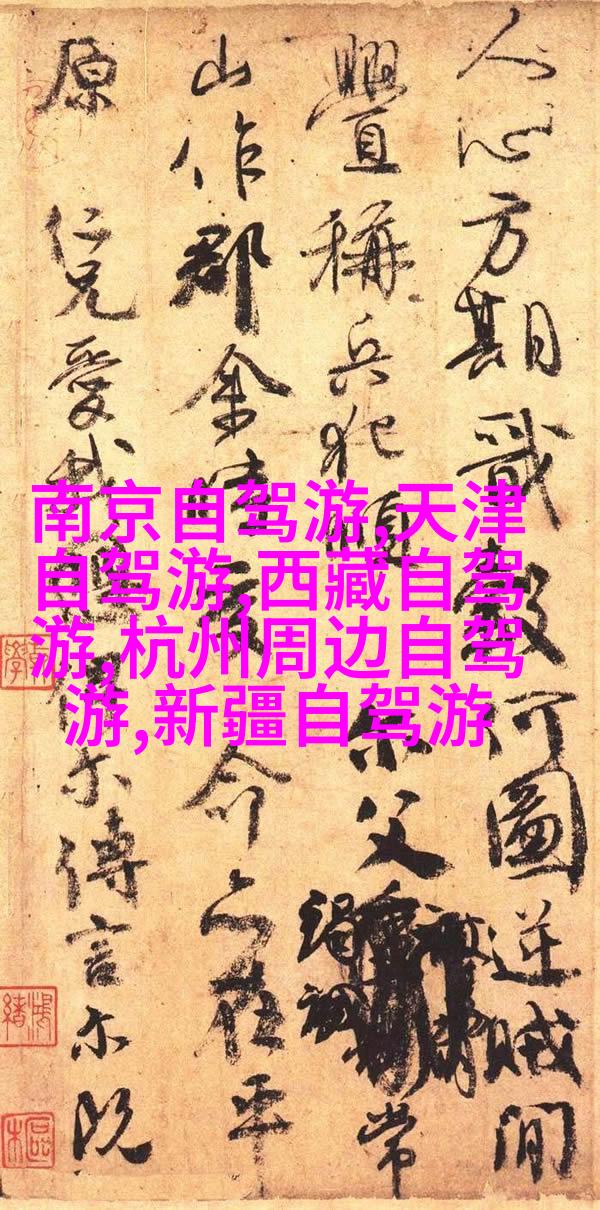 人心方期戩穀何圖逆賊間
釁稱兵犯順尔父常
山作郡余時命亦在平
原仁兄愛我尔傳言尔既
南京自驾游,天津
自驾游,西藏自驾
游,杭州周边自驾
游,新疆自驾游